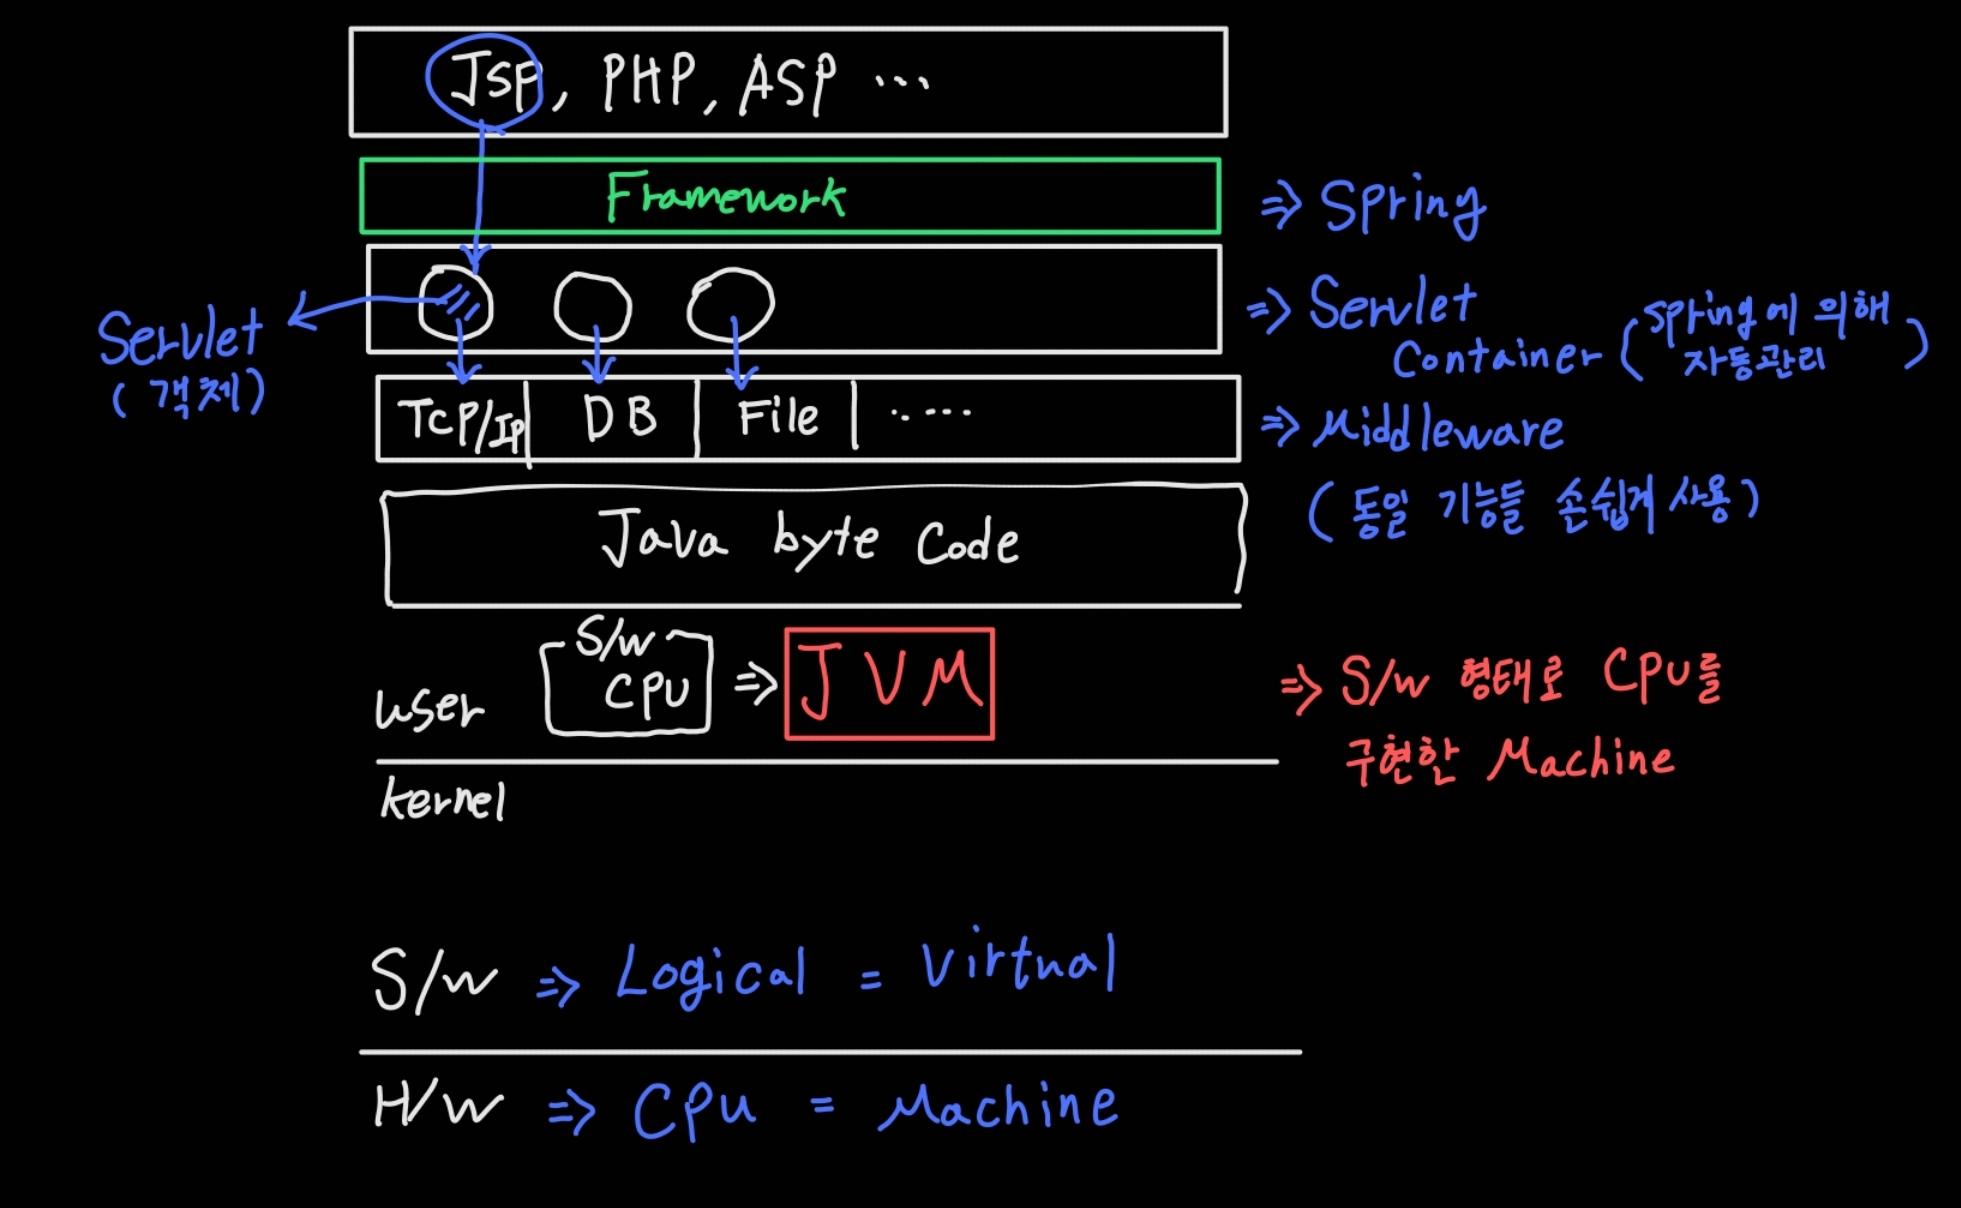 JSP, PHP, ASP ...
Framework
⇒ Spring
Servlet
(객체)
⇒ Servlet
Container (Spring에 의해
자동관리)
TCP/IP
DB
File
.....
⇒ Middleware
(동일 기능들 손쉽게 사용)
Java byte Code
user
S/W
CPU
⇒
JVM
⇒ S/W 형태로 CPU를
구현한 Machine
kernel
S/W ⇒ Logical = Virtual
H/W ⇒ CPU = Machine